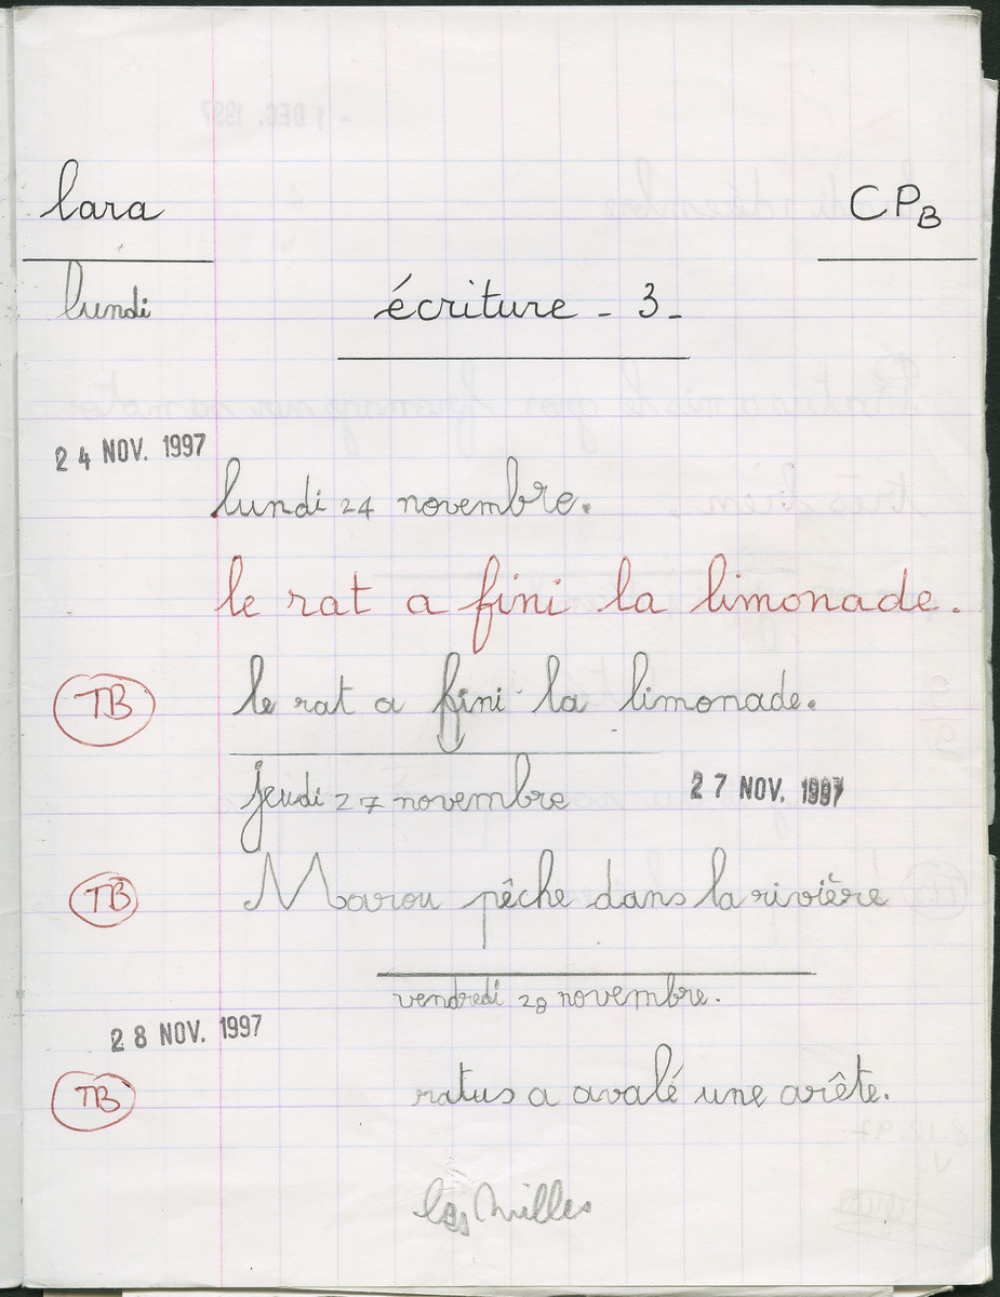 lara CPB
lundi écriture - 3 -
24 NOV. 1997
lundi 24 novembre.
le rat a fini la limonade.
TB le rat a fini la limonade.
jeudi 27 novembre 27 NOV. 1997
TB Marou pêche dans la rivière
vendredi 28 novembre.
28 NOV. 1997
TB ratus a avalé une arête.
les milles